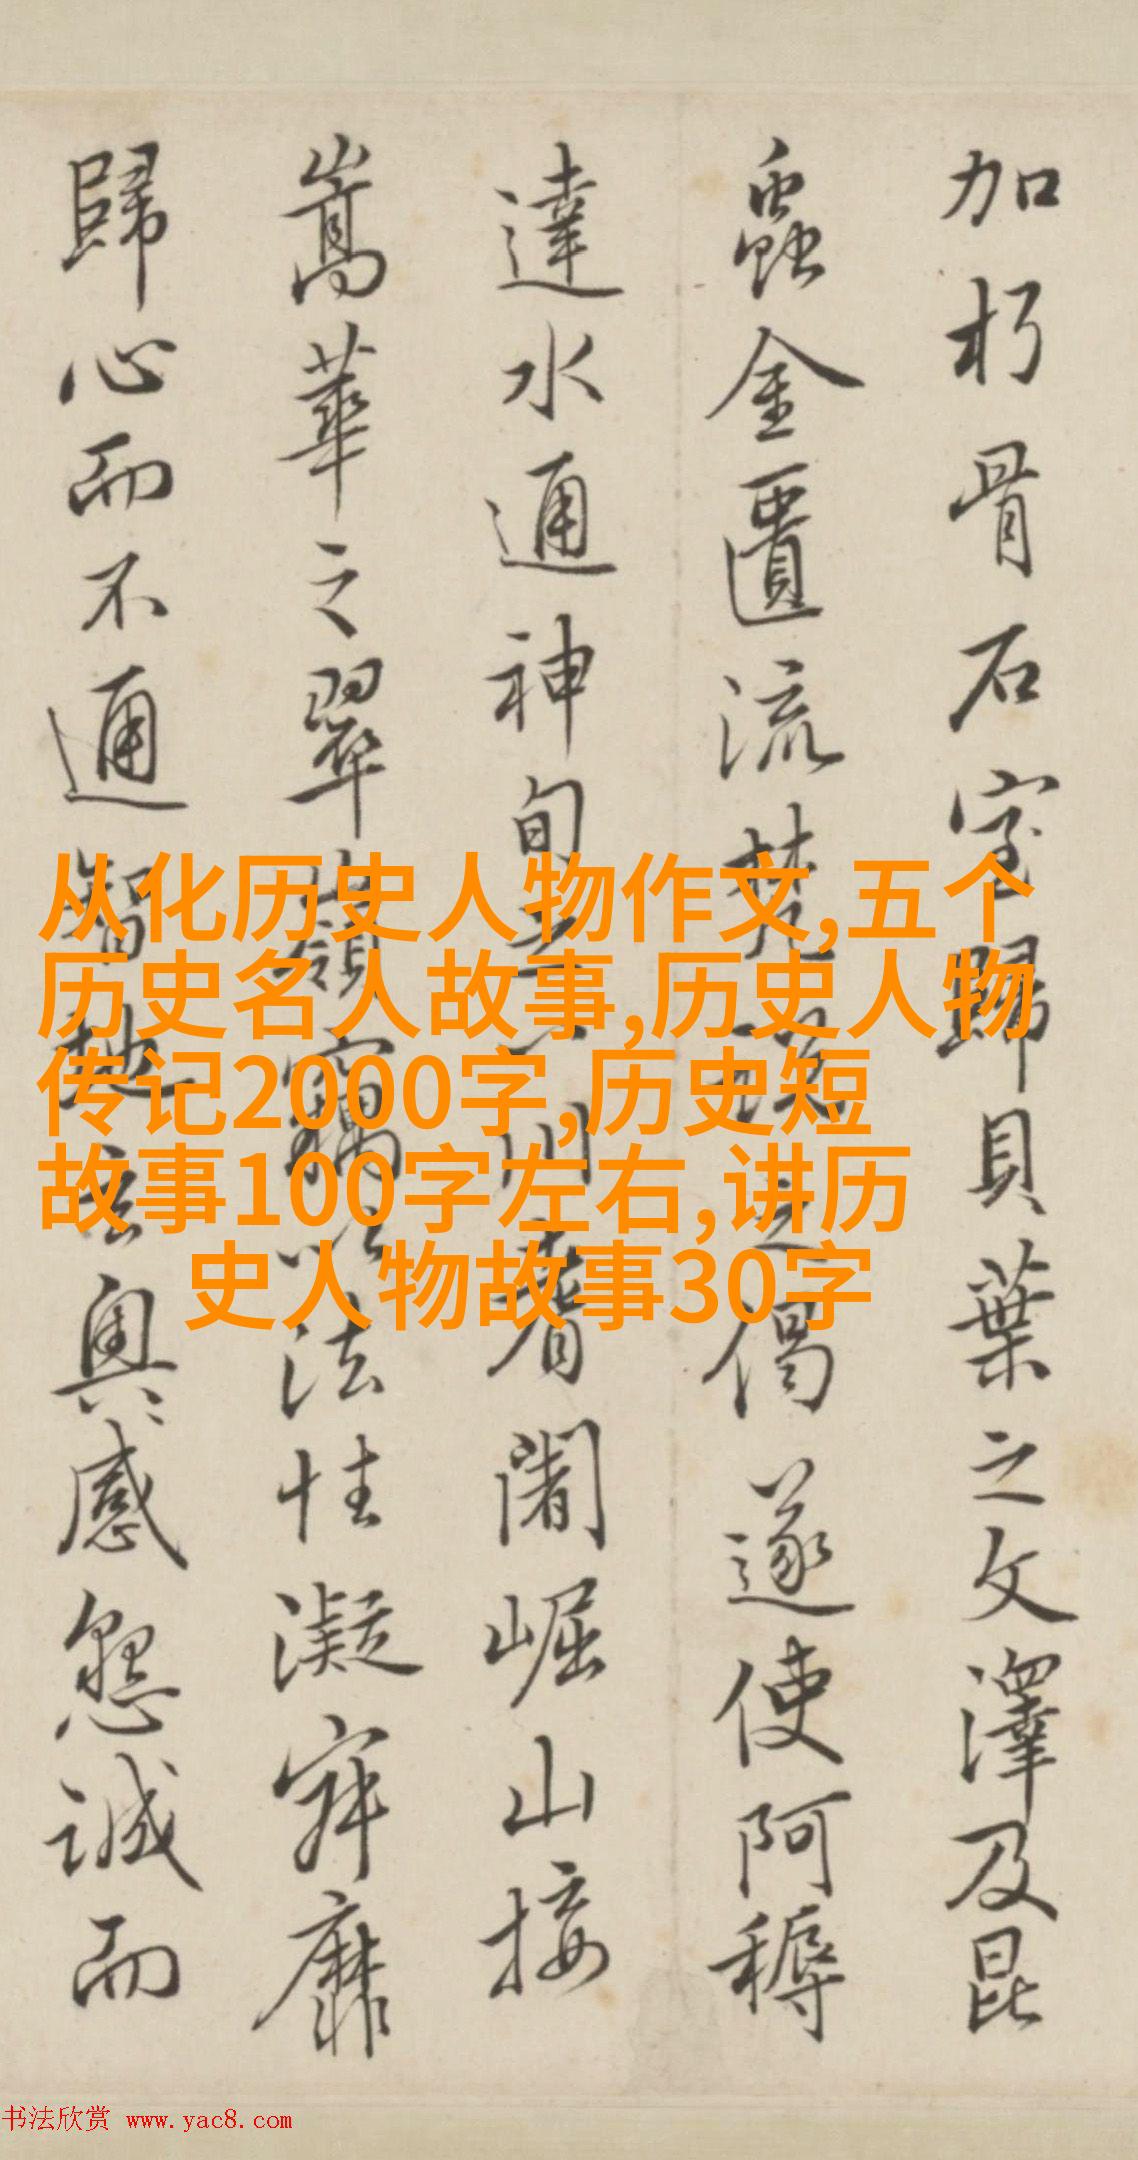 加朽骨石室歸貝葉之文澤及昆
蟲金匱流梵說之偈遂使阿耨
達水通神甸之八川耆闍崛山接
嵩華之翠嶺竊以法性凝寂靡
歸心而不通智地玄奧感懇誠而
从化历史人物作文,五个
历史名人故事,历史人物
传记2000字,历史短
故事100字左右,讲历
史人物故事30字
书法欣赏 www.yac8.com